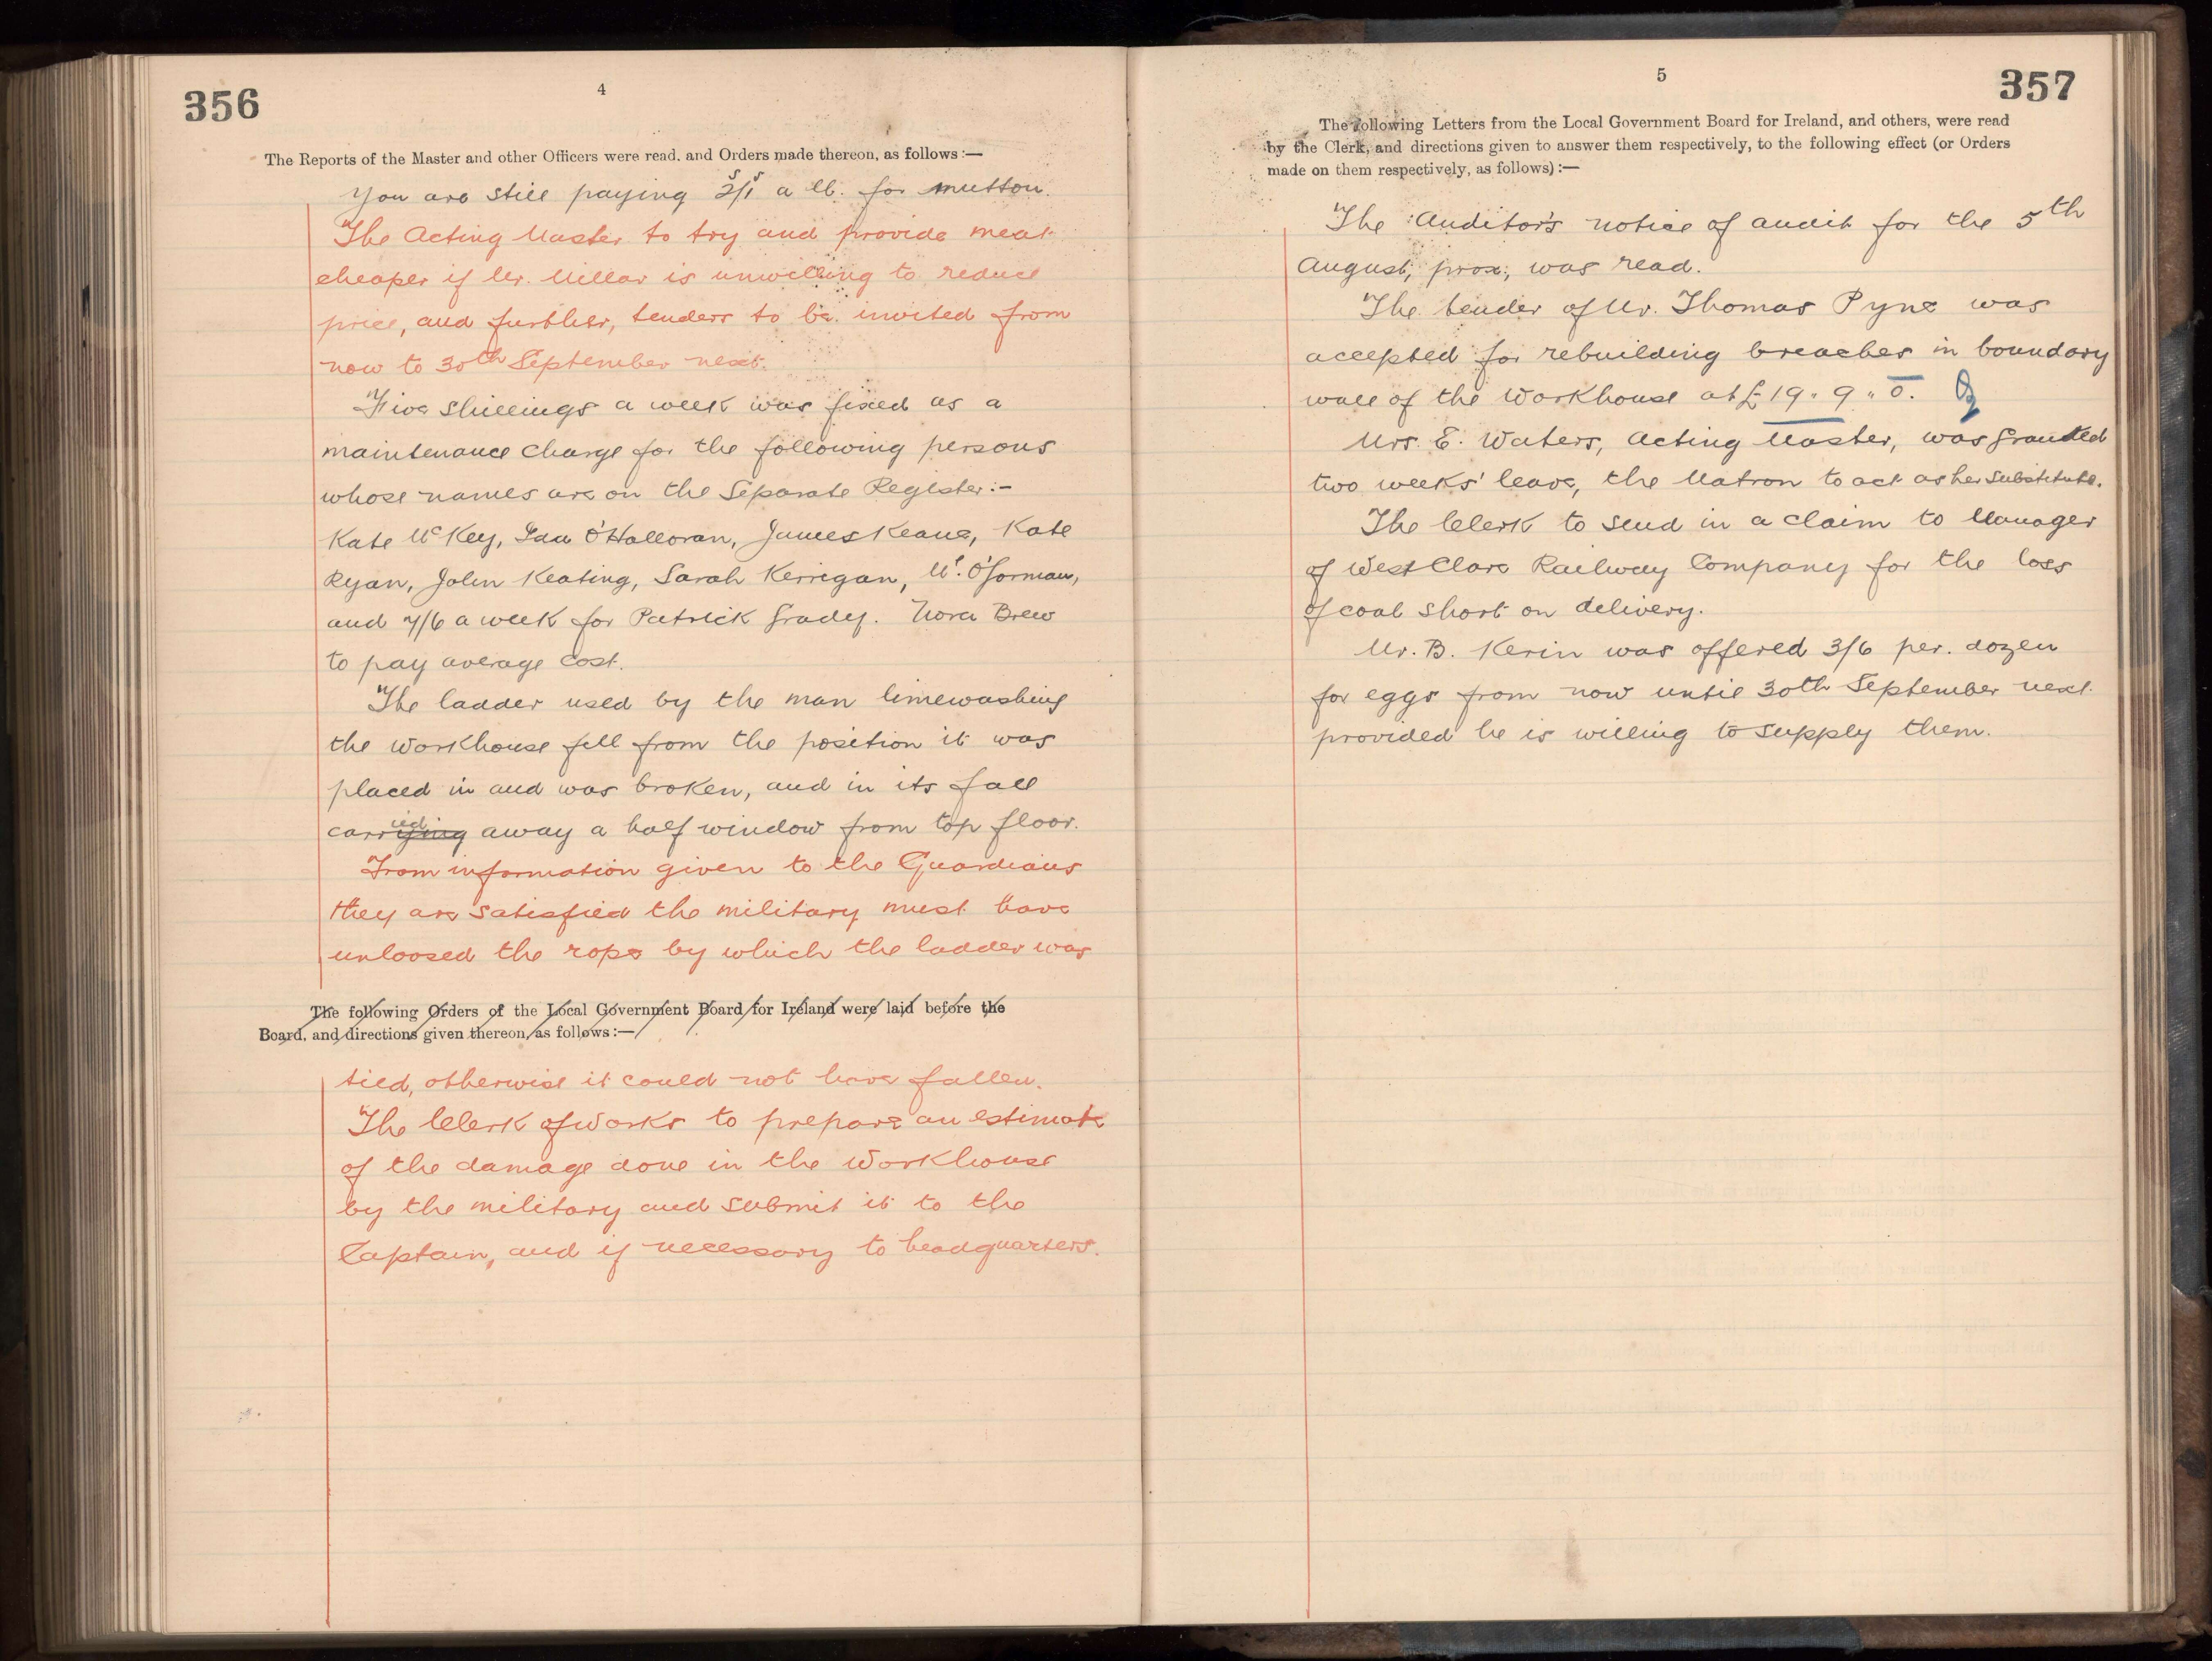 356
4
The Reports of the Master and other Officers were read, and Orders made thereon, as follows:—
You are still paying 2/1 a lb. for mutton.
The Acting Master to try and provide meat
cheaper if Mr. Millar is unwilling to reduce
price, and further, tenders to be invited from
now to 30th September next.
Five shillings a week was fixed as a
maintenance charge for the following persons
whose names are on the Separate Register:-
Kate McKey, O'Halloran, James Keane, Kate
Ryan, John Keating, Sarah Kerrigan, Mt. O'Gorman,
and 7/6 a week for Patrick Grady. Nora Brew
to pay average cost.
The ladder used by the man limewashing
the Workhouse fell from the position it was
placed in and was broken, and in its fall
carried away a half window from top floor.
From information given to the Guardians
they are satisfied the military must have
unloosed the rope by which the ladder was
The following Orders of the Local Government Board for Ireland were laid before the
Board, and directions given thereon, as follows:—
tied, otherwise it could not have fallen.
The Clerk of Works to prepare an estimate
of the damage done in the Workhouse
by the military and submit it to the
Captain, and if necessary to headquarters.
5
357
The following Letters from the Local Government Board for Ireland, and others, were read
by the Clerk, and directions given to answer them respectively, to the following effect (or Orders
made on them respectively, as follows):—
The Auditor's notice of audit for the 5th
August, prox., was read.
The tender of Mr. Thomas Pyne was
accepted for rebuilding breaches in boundary
wall of the Workhouse at £19 " 9 " 0.
Mrs. E. Waters, Acting Master, was granted
two weeks' leave, the Matron to act as her substitute.
The Clerk to send in a claim to Manager
of West Clare Railway Company for the loss
of coal short on delivery.
Mr. B. Kerin was offered 3/6 per. dozen
for eggs from now until 30th September next.
provided he is willing to supply them.